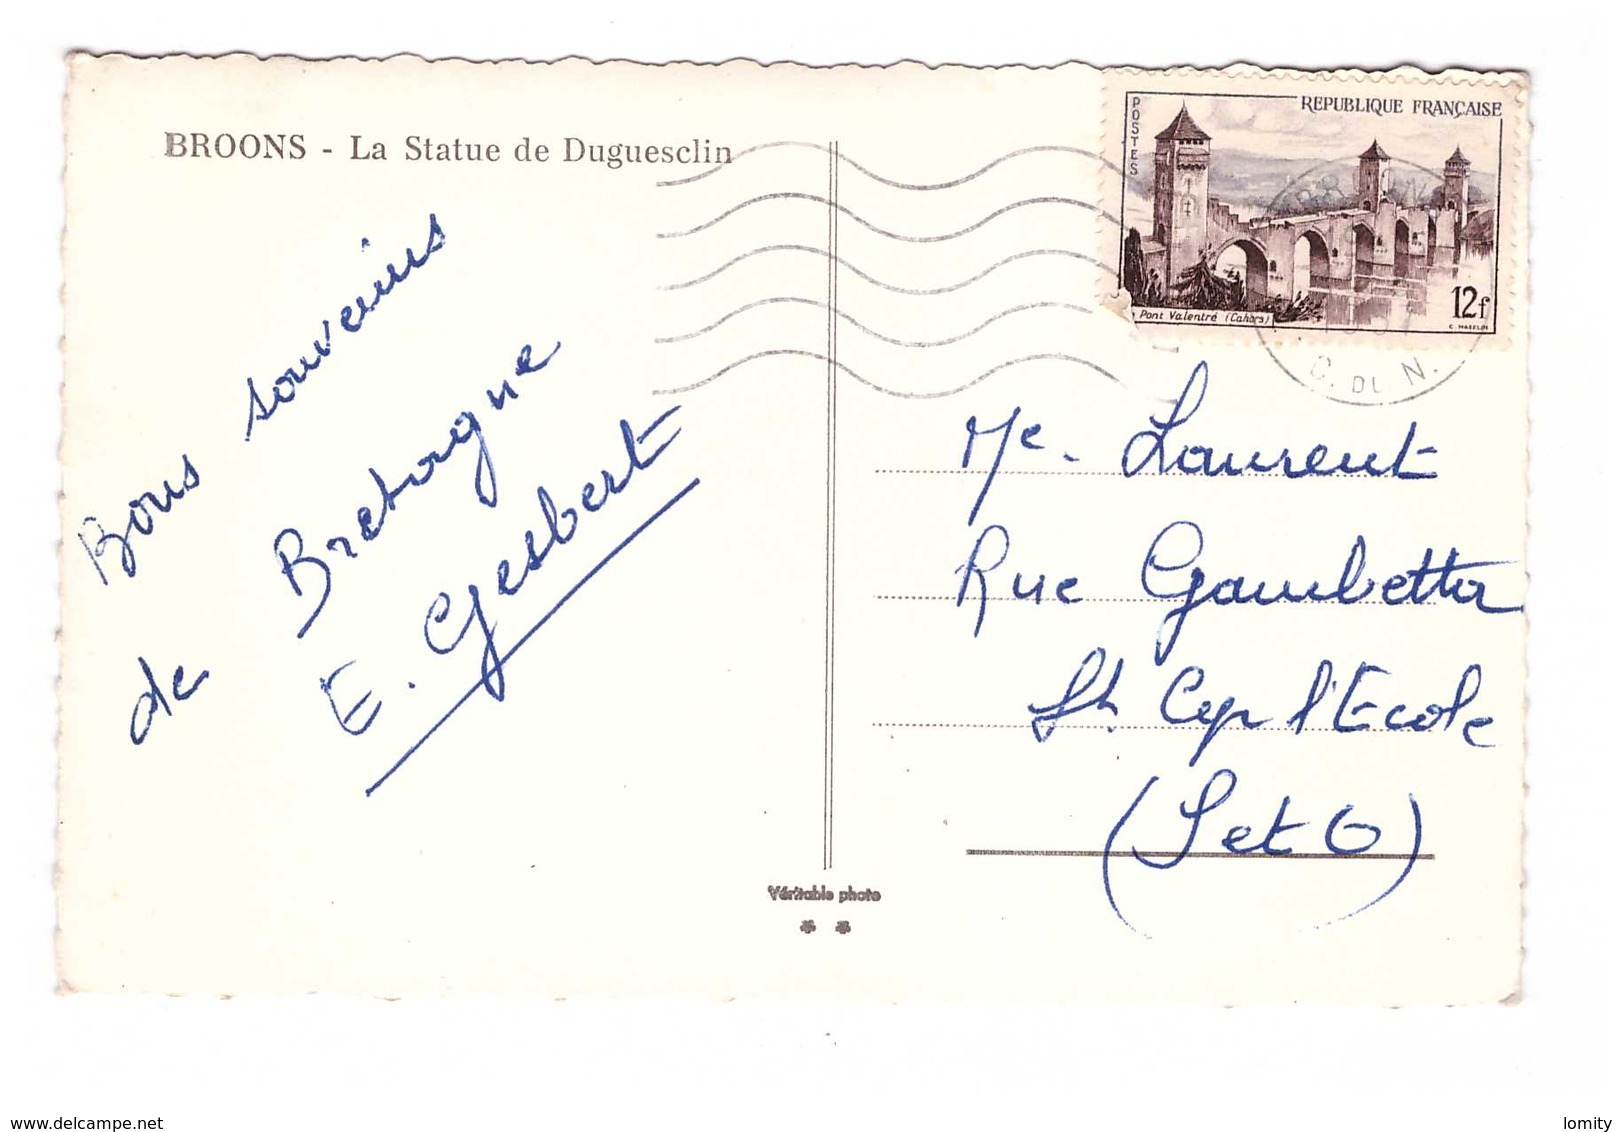 BROONS - La Statue de Duguesclin
Bons souvenirs
de Bretagne
E. Gesbert
POSTES
REPUBLIQUE FRANÇAISE
Pont Valentré (Cahors)
12f
C. DU N.
Me. Laurent
Rue Gambetta
St. Cyr l'Ecole
(S et O)
Véritable photo
www.delcampe.net
lomity